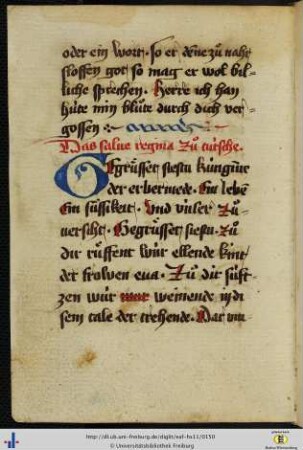 oder ein wort. so er dēne zu nacht
sloffen got so mag er wol bil-
liche sprechen. Herre ich han
hüte min blůte durch dich ver-
gossen
Das salve regina zů tutsche.
Gegrüsset siestu kungīne
der erbermede. Ein lebē
Ein süssikeit. Vnd vnser zů-
versiht. Gegrüsset siestu. zů
dir rüffent wur ellende kint
der frowen eva. Zů dir süft-
zen wur weinende in di
sem tale der trehende. Dar vm
http://dl.ub.uni-freiburg.de/diglit/suf-hs11/0150
© Universitätsbibliothek Freiburg